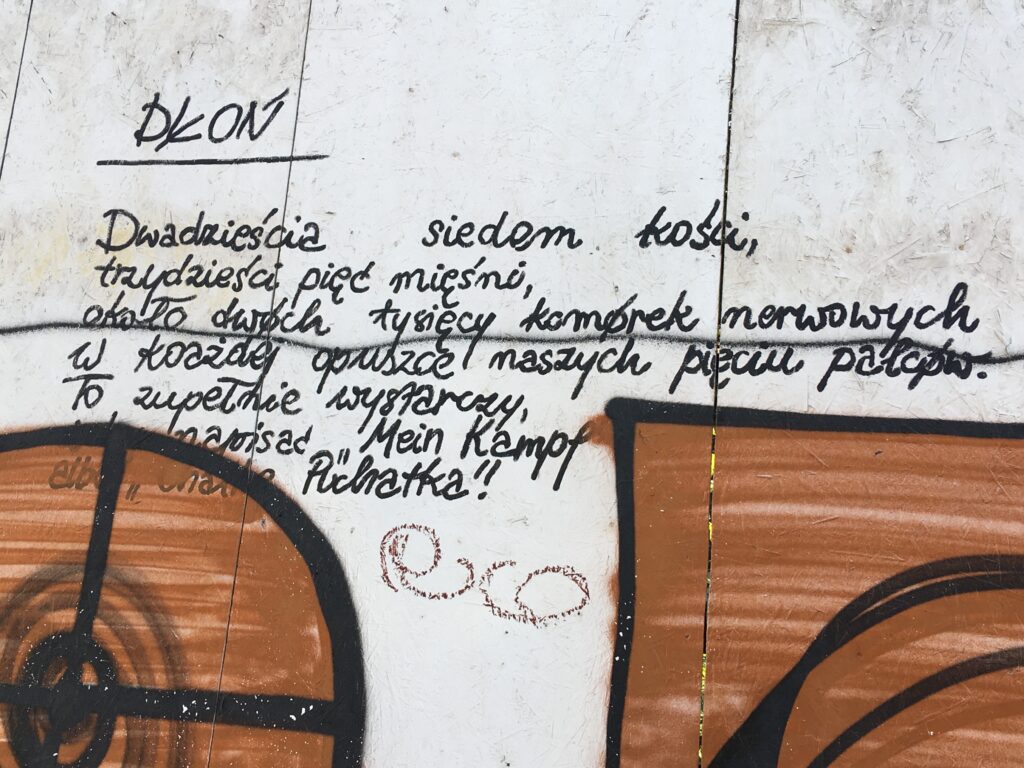 DŁOŃ
Dwadzieścia siedem kości,
trzydzieści pięć mięśni,
około dwóch tysięcy komórek nerwowych
w każdej opuszce naszych pięciu palców.
To zupełnie wystarczy,
napisać „Mein Kampf
albo „Chatkę Puchatka"!